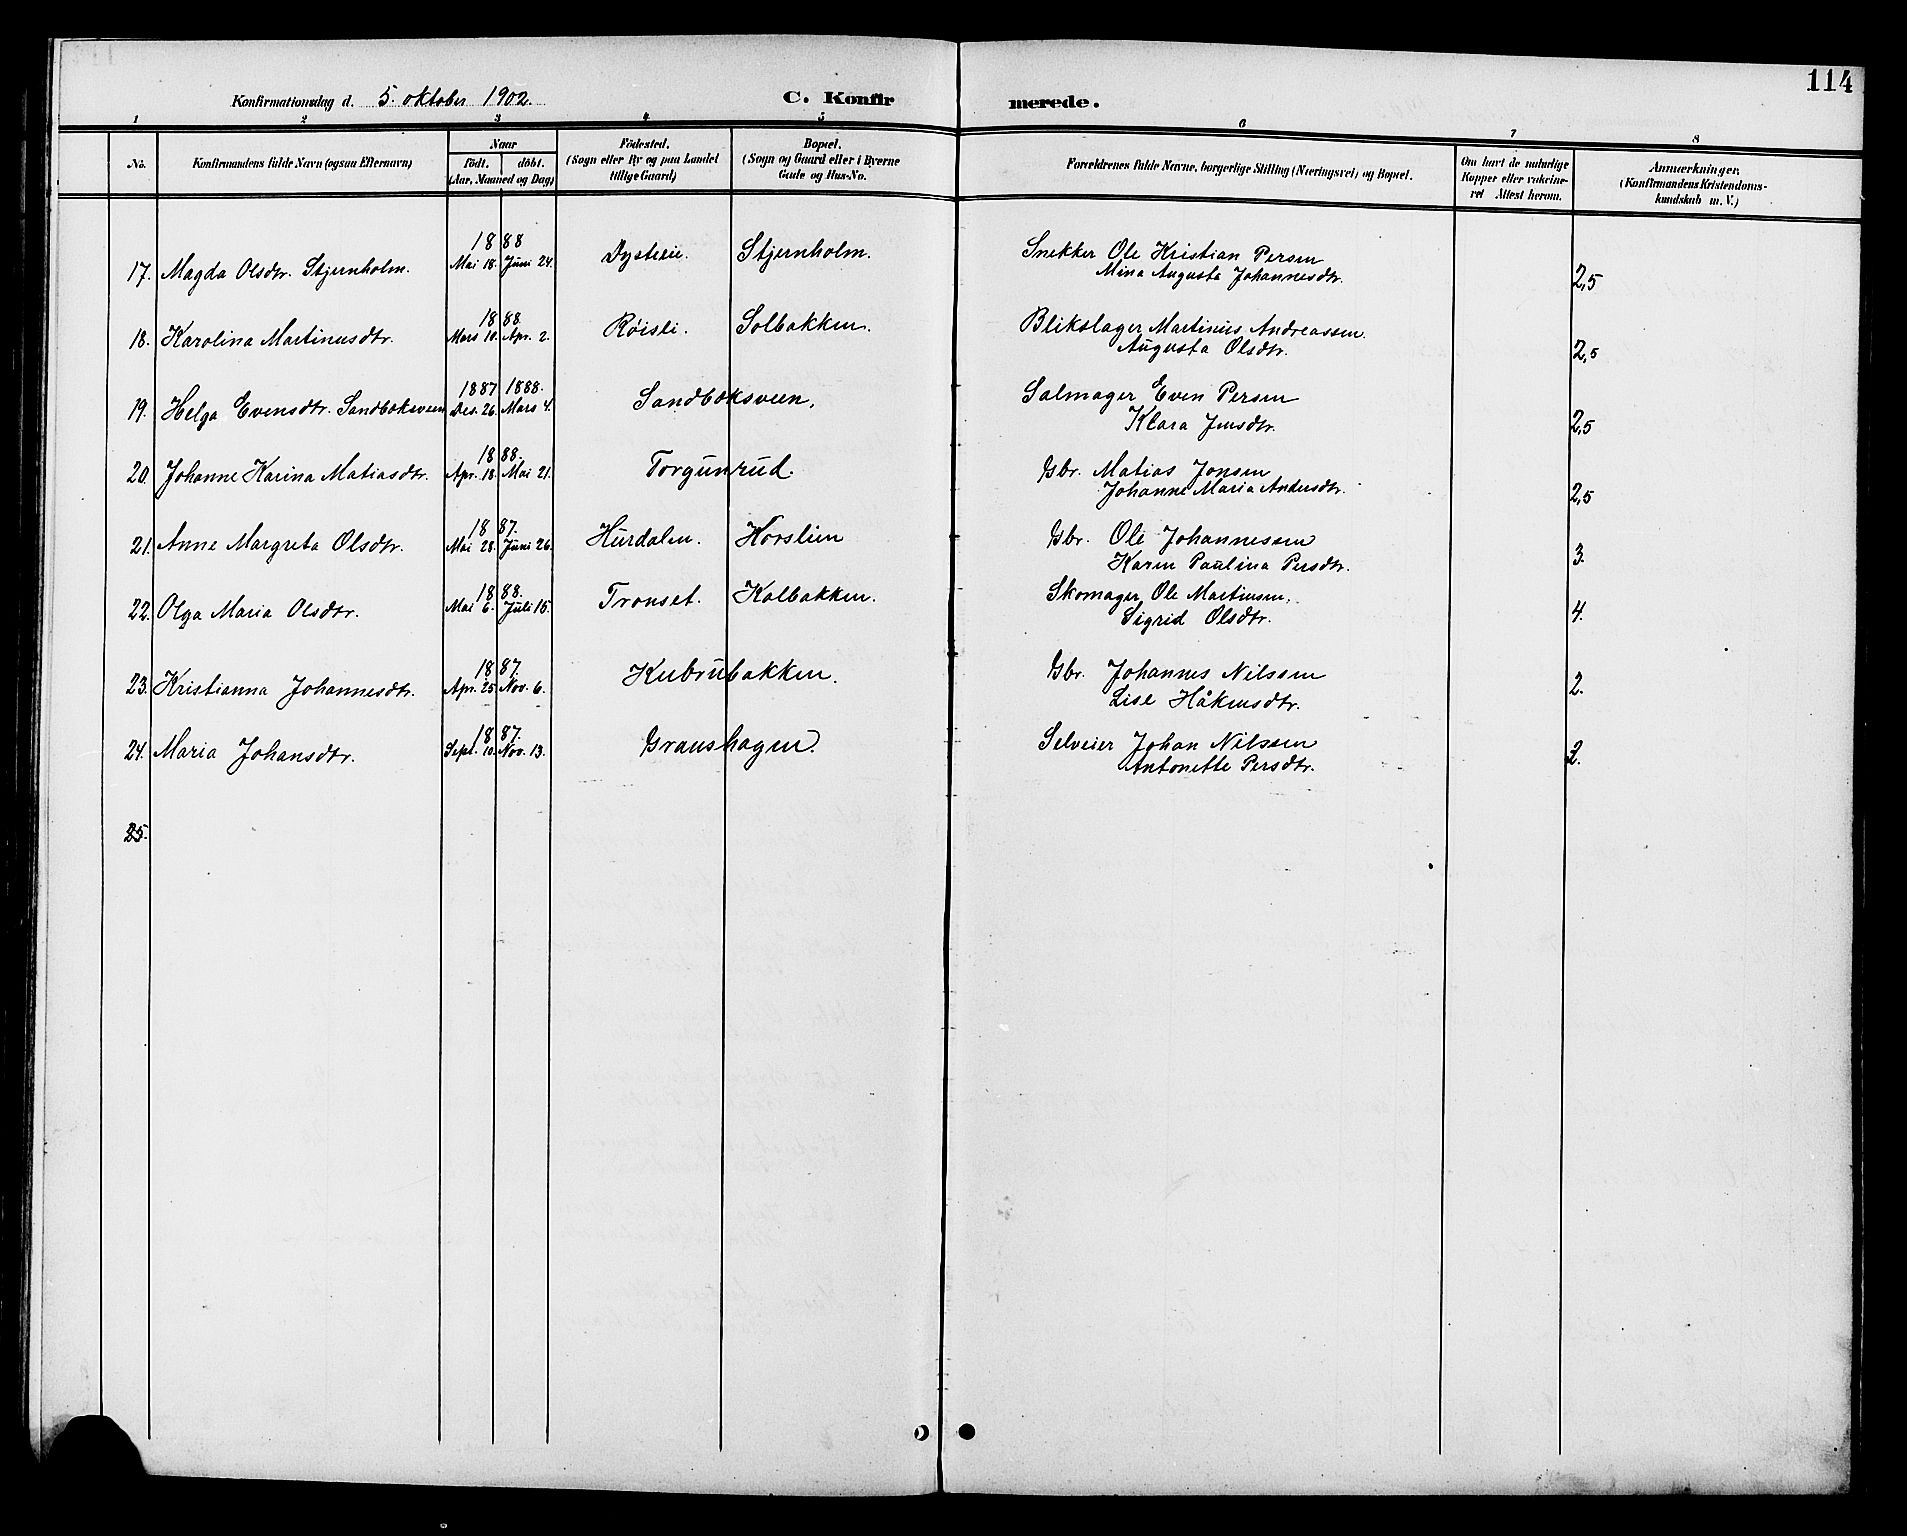 114
Konfirmationsdag d. 5. oktober 1902. C. Konfirmerede.
1 2 3 4 5 6 7 8
No. Konfirmandens fulde Navn (ogsaa Efternavn) Naar födt. döbt. (Aar, Maaned og Dag) Födested. (Sogn eller By og paa Landet tillige Gaard) Bopæl. (Sogn og Gaard eller i Byerne Gade og Hus-No. Forældrenes fulde Navne, borgerlige Stilling (Næringsvei) og Bopæl. Om havt de naturlige Kopper eller vakcineret Attest herom. Anmærkninger. (Konfirmandens Kristendomskundskab m. V.)
17. Magda Olsdtr. Stjernholm. 1888 Mai 18. Juni 24. Dysteeie. Stjernholm. Snekker Ole Kristian Persen
Mina Augusta Johannesdtr. 2,5
18. Karolina Martinusdtr. 1888. Mars 10. Apr. 2. Röisli. Solbakken. Blikslager Martinus Andreassen.
Augusta Olsdtr. 2,5
19. Helga Evensdtr. Sandboksveen 1887 Des. 26. 1888. Mars 4. Sandboksveen. Salmager Even Persen
Klara Jensdtr. 2,5
20. Johanne Karina Matiasdtr. 1888. Apr. 18. Mai 21. Torgunrud. Gbr. Matias Jonsen
Johanne Maria Andersdtr. 2,5
21. Anne Margreta Olsdtr. 1887. Mai 28. Juni 26. Hurdalen. Korslien Gbr. Ole Johannessen
Karen Paulina Persdtr. 3.
22. Olga Maria Olsdtr. 1888. Mai 6. Juli 15. Tronset. Kalbakken. Skomager Ole Martinsen.
Sigrid Olsdtr. 4.
23. Kristianna Johannesdtr. 1887. Apr. 25. Nov. 6. Kubrubakken. Gbr. Johannes Nilssen
Lise Håkensdtr. 2.
24. Maria Johansdtr. 1887. Sept. 10. Nov. 13. Graushagen. Selveier Johan Nilssen
Antonette Persdtr. 2.
25.